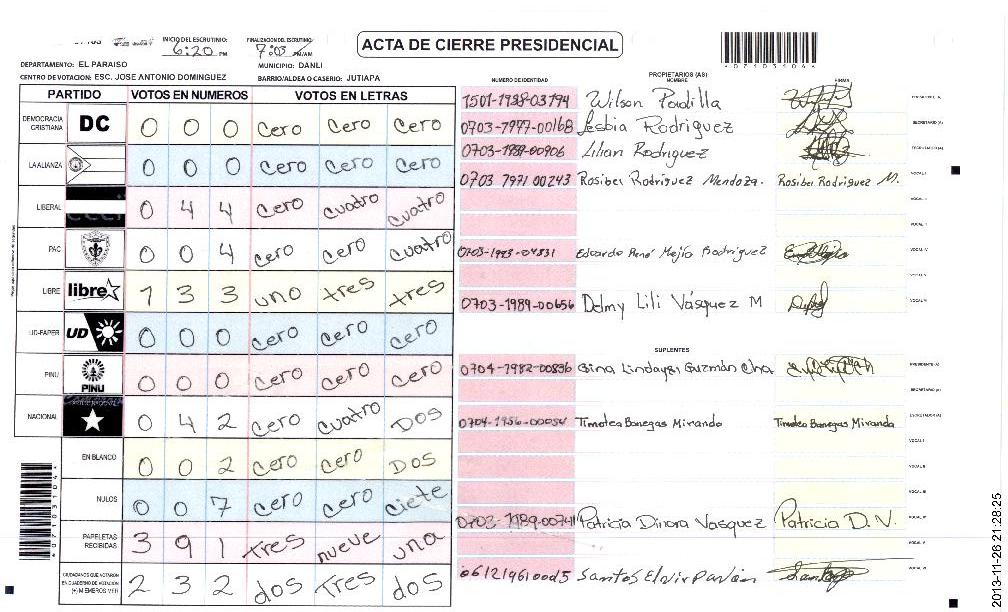 INICIO DEL ESCRUTINIO: 6:20 PM
FINALIZACION DEL ESCRUTINIO: 7:03 PM/AM
ACTA DE CIERRE PRESIDENCIAL
DEPARTAMENTO: EL PARAISO
MUNICIPIO: DANLI
CENTRO DE VOTACION: ESC. JOSE ANTONIO DOMINGUEZ
BARRIO/ALDEA O CASERIO: JUTIAPA
PARTIDO VOTOS EN NUMEROS VOTOS EN LETRAS
DEMOCRACIA CRISTIANA DC 0 0 0 cero cero cero
LA ALIANZA 0 0 0 cero cero cero
LIBERAL 0 4 4 cero cuatro cuatro
PAC 0 0 4 cero cero cuatro
LIBRE libre 1 3 3 uno tres tres
UD-FAPER UD 0 0 0 cero cero cero
PINU PINU 0 0 0 cero cero cero
NACIONAL 0 4 2 cero cuatro Dos
EN BLANCO 0 0 2 cero cero Dos
NULOS 0 0 7 cero cero ciete
PAPELETAS RECIBIDAS 3 9 1 tres nueve una
CIUDADANOS QUE VOTARON EN CUADERNO DE VOTACION (+) MIEMBROS MER 2 3 2 dos tres dos
PROPIETARIOS (AS)
NUMERO DE IDENTIDAD NOMBRE FIRMA
1501-1988-03794 Wilson Padilla
0703-1977-00168 Lesbia Rodriguez SECRETARIO (A)
0703-1989-00906 Lilian Rodriguez ESCRUTADOR (A)
0703 1971 00243 Rosibel Rodriguez Mendoza. Rosibel Rodriguez M. VOCAL I
VOCAL II
VOCAL III
Eduardo René Mejía Rodriguez VOCAL IV
VOCAL V
0703-1989-00656 Delmy Lili Vásquez M VOCAL VI
SUPLENTES
0704-1982-00836 Gina Guzmán PRESIDENTE (A)
SECRETARIO (A)
0704-1956-00054 Timotea Banegas Miranda Timotea Banegas Miranda ESCRUTADOR (A)
VOCAL I
VOCAL II
VOCAL III
0703-1989-00741 Patricia Dinora Vasquez Patricia D.V. VOCAL IV
VOCAL V
Santos Elvir VOCAL VI
2013-11-26 21:28:25